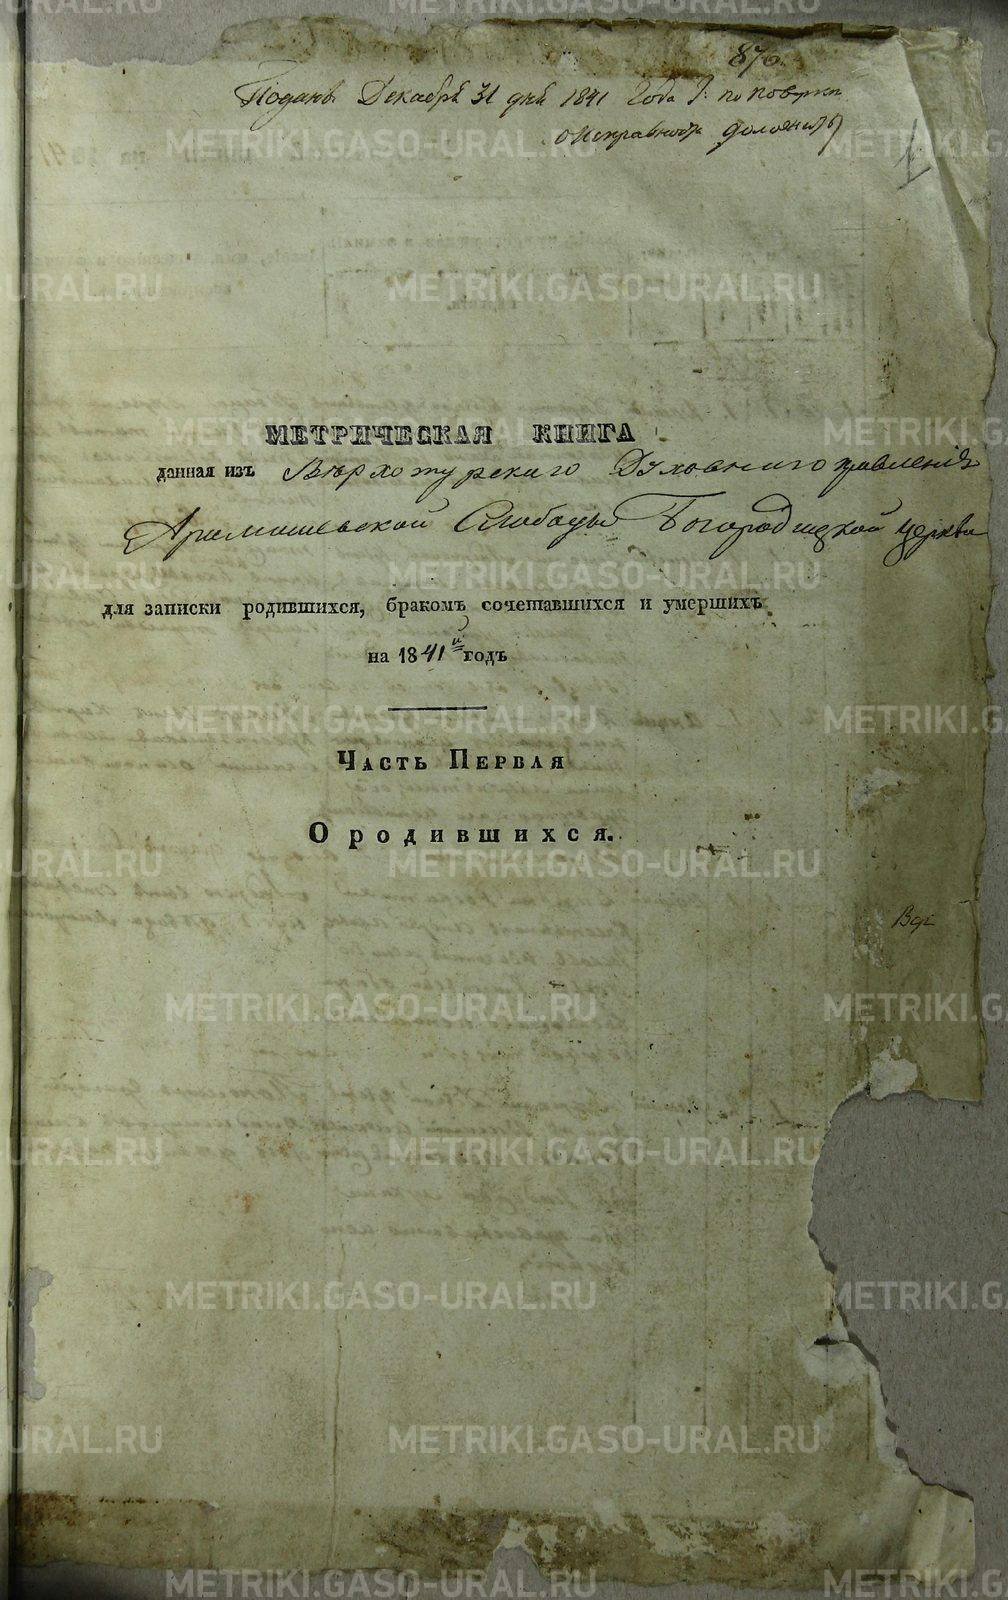 876.
Поданъ Декабря 31 дня 1841 Года №. по повѣрки
о исправности доложить
МЕТРИЧЕСКАЯ КНИГА
данная изъ Верхотурскаго Духовнаго правленія
Арамашевской Слободы Богородицкой церкви
для записки родившихся, бракомъ сочетавшихся и умершихъ
на 1841й годъ
ЧАСТЬ ПЕРВАЯ
О родившихся.
METRIKI.GASO-URAL.RU